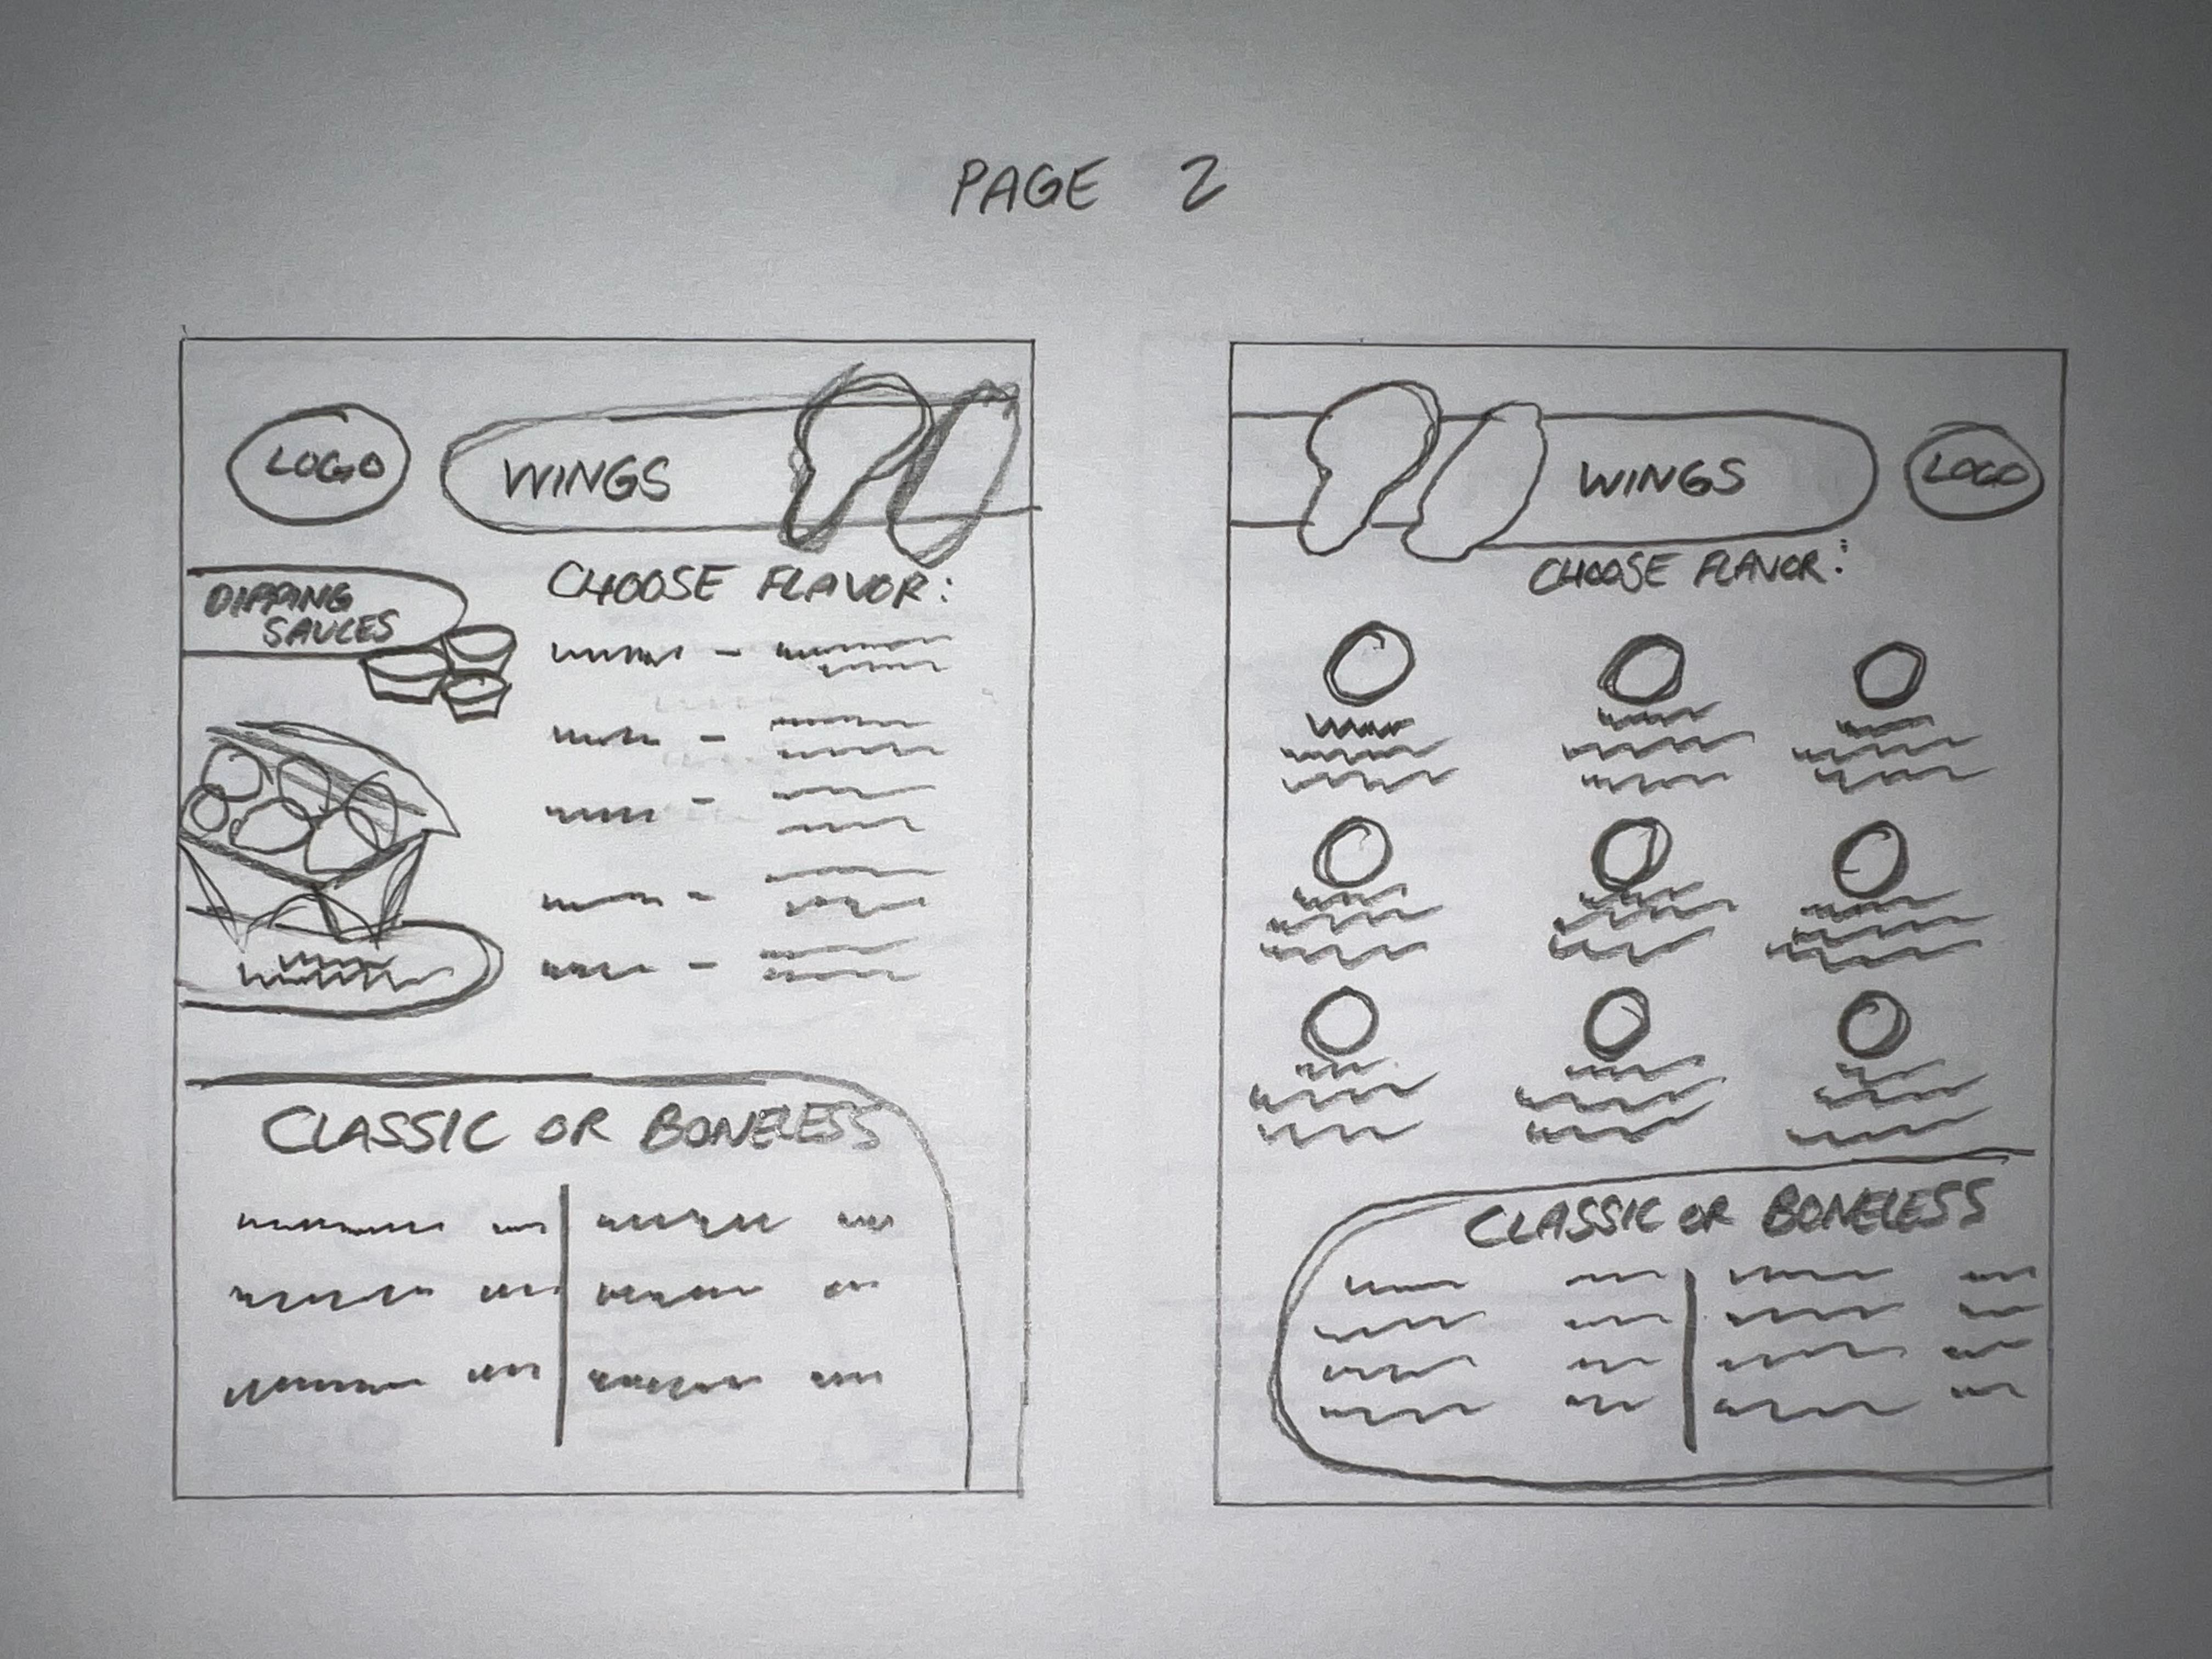 PAGE 2
LOGO
WINGS
DIPPING
SAUCES
CHOOSE FLAVOR:
CLASSIC OR BONELESS
WINGS
LOGO
CHOOSE FLAVOR:
CLASSIC OR BONELESS